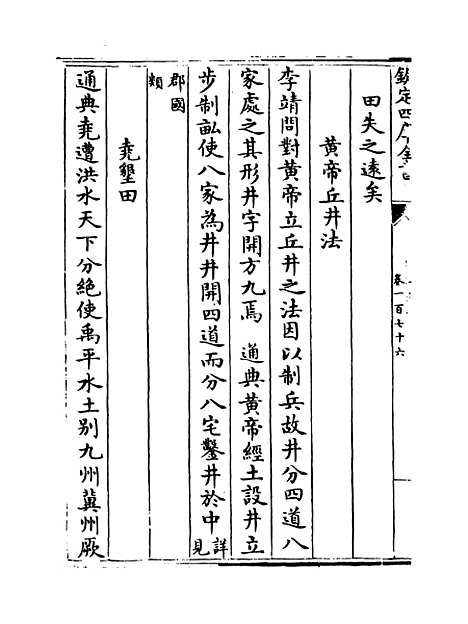 欽定四庫全書
卷一百七十六
田失之遠矣
黄帝丘井法
李靖問對黄帝立丘井之法因以制兵故井分四道八
家處之其形井字開方九焉　通典黄帝經土設井立
步制畝使八家為井井開四道而分八宅鑿井於中詳見
郡國類
堯墾田
通典堯遭洪水天下分絶使禹平水土别九州冀州厥